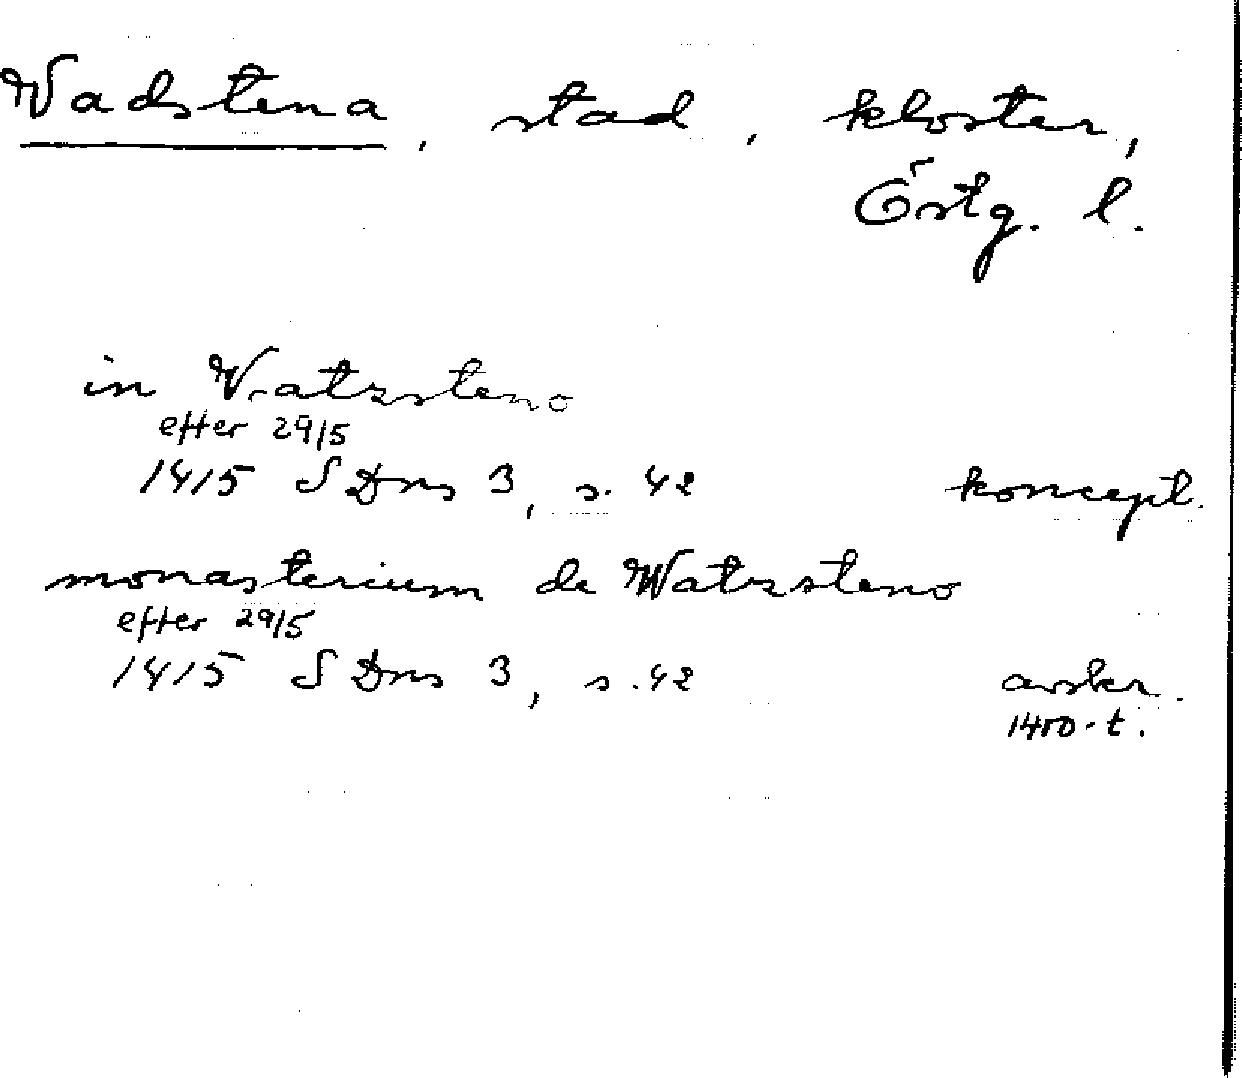 Wadstena, stad, kloster,
Östg. l.
in Watzsteno
efter 29/5
1415 SDns 3, s. 42 koncept.
monasterium de Watzsteno
efter 29/5
1415 SDns 3, s. 42 avskr.
1400-t.